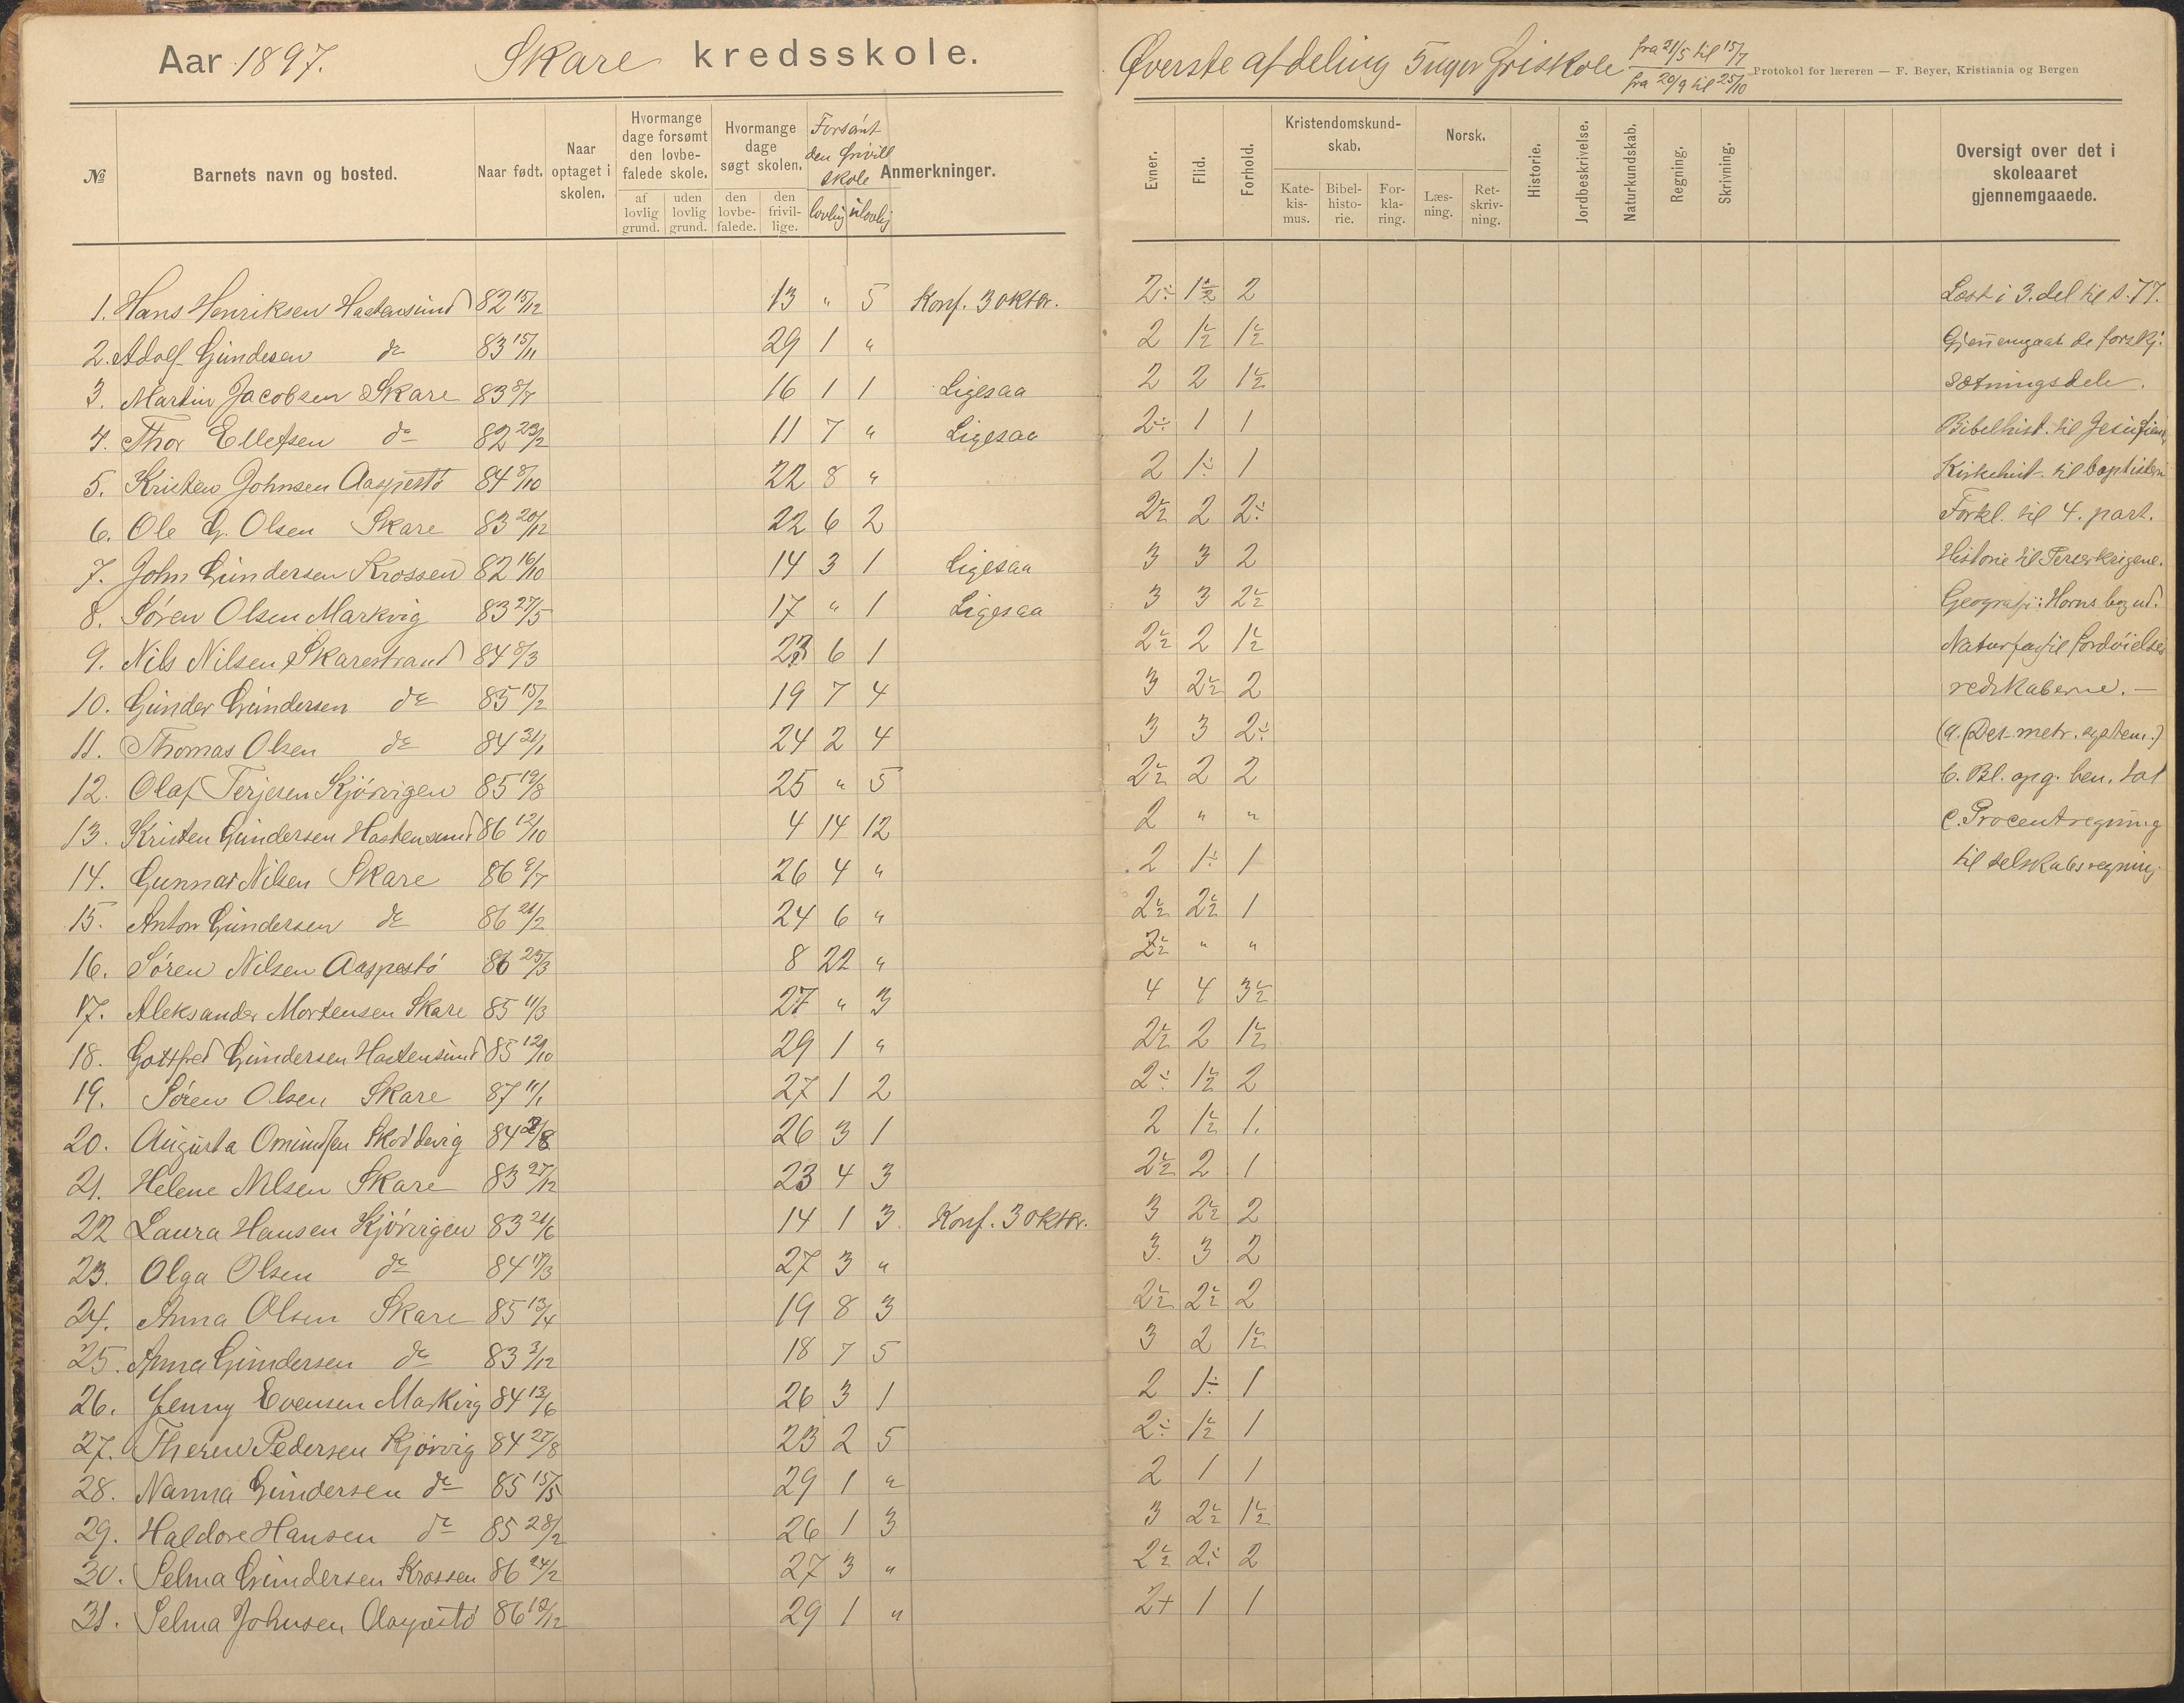 Aar 1897. Skare kredsskole.
Øverste afdeling 5 uger friskole fra 21/5 til 15/7
fra 20/9 til 25/10
Protokol for læreren — F. Beyer, Kristiania og Bergen
№ Barnets navn og bosted. Naar født. Naar optaget i skolen. Hvormange dage forsømt den lovbefalede skole. af lovlig grund. uden lovlig grund. Hvormange dage søgt skolen. den lovbefalede. den frivillige. Forsømt den frivill skole lovlig ulovlig Anmerkninger.
Evner. Flid. Forhold. Kristendomskundskab. Katekismus. Bibelhistorie. Forklaring. Norsk. Læsning. Retskrivning. Historie. Jordbeskrivelse. Naturkundskab. Regning. Skrivning. Oversigt over det i skoleaaret gjennemgaaede.
1. Hans Henriksen Hastensund 82 15/12 13 " 5 Konf. 3 oktbr. 2÷ 1½ 2 Læst i 3. del til s. 77.
2. Adolf Gundesen do 83 15/11 29 1 " 2 1½ 1½ Gjennemgaat de forskj:
3. Martin Jacobsen Skare 83 8/7 16 1 1 Ligesaa 2 2 1½ sætningsdele.
4. Thor Ellefsen do 82 23/2 11 7 " Ligesaa 2÷ 1 1 Bibelhist. til Jesu
5. Kristen Johnsen Aaspestø 84 8/10 22 8 " 2 1÷ 1 Kirkehist. til baptisten
6. Ole G. Olsen Skare 83 20/12 22 6 2 2½ 2 2÷ Forkl. til 4. part.
7. John Gundersen Krossen 82 16/10 14 3 1 Ligesaa 3 3 2 Historie til Perserkrigene.
8. Søren Olsen Markvig 83 27/5 17 " 1 Ligesaa 3 3 2½ Geografi: Horns bog ud.
9. Nils Nilsen Skarestrand 84 8/3 23 6 1 2½ 2 1½ Naturfag til fordøielses
10. Gunder Gundersen do 85 15/2 19 7 4 3 2½ 2 redskaberne. —
11. Thomas Olsen do 84 31/1 24 2 4 3 3 2÷ (a. (Det metr. system.)
12. Olaf Terjesen Kjørvigen 85 19/8 25 " 5 2½ 2 2 b. Bl. opg. ben. tal
13. Kristen Gundersen Hastensund 86 12/10 4 14 12 2 " " c. Procentregning
14. Gunnar Nilsen Skare 86 9/7 26 4 " 2 1÷ 1 til selskabsregning
15. Anton Gundersen do 86 21/2 24 6 " 2½ 2½ 1
16. Søren Nilsen Aaspestø 86 25/3 8 22 " 2½ " "
17. Aleksander Mortensen Skare 85 11/3 27 " 3 4 4 3½
18. Gottfred Gundersen Hastensund 85 12/10 29 1 " 2½ 2 1½
19. Søren Olsen Skare 87 11/1 27 1 2 2÷ 1½ 2
20. Augusta Omundsen 84 /8 26 3 1 2 1½ 1.
21. Helene Nilsen Skare 83 27/12 23 4 3 2½ 2 1
22 Laura Hansen Kjørvigen 83 21/6 14 1 3 Konf. 3 oktbr. 3 2½ 2
23. Olga Olsen do 84 17/3 27 3 " 3. 3 2
24. Anna Olsen Skare 85 13/4 19 8 3 2½ 2½ 2
25. Anna Gundersen do 83 3/12 18 7 5 3 2 1½
26. Jenny Evensen Markvig 84 13/6 26 3 1 2 1÷ 1
27. Therese Pedersen Kjørvig 84 27/8 23 2 5 2÷ 1½ 1
28. Nanna Gundersen do 85 15/5 29 1 " 2 1 1
29. Haldore Hansen do 85 28/2 26 1 3 3 2½ 1½
30. Selma Gundersen Krossen 86 24/2 27 3 " 2½ 2÷ 2
31. Selma Johnsen Aaspestø 86 12/12 29 1 " 2+ 1 1